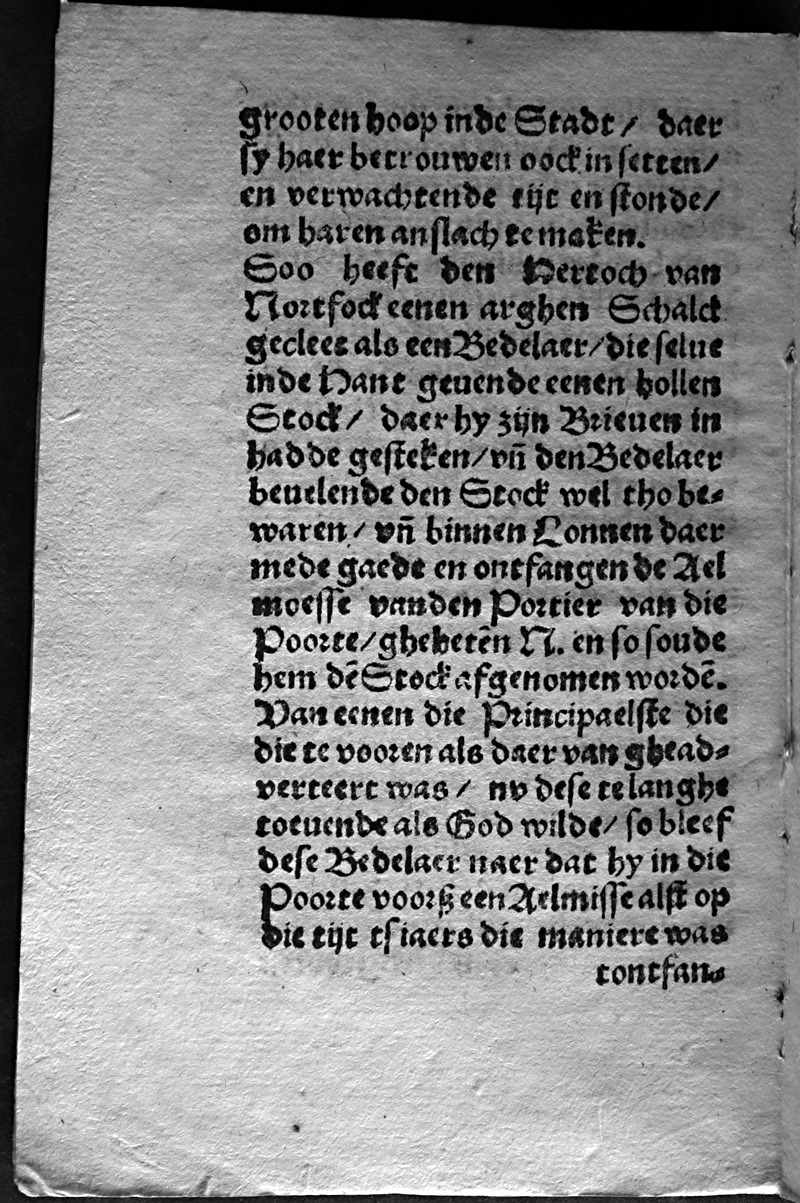 grooten hoop inde Stadt/ daer
sy haer betrouwen oock in setten/
en verwachtende tijt en stonde/
om haren anslach te maken.
Soo heeft den Hertoch van
Nortfock eenen arghen Schalck
gecleet als een Bedelaer/die selue
inde Hant geuende eenen hollen
Stock/ daer hy zijn Brieuen in
hadde gesteken/vñ den Bedelaer
beuelende den Stock wel tho be⸗
waren/ vñ binnen Lonnen daer
mede gaede en ontfangende Ael
moesse vanden Portier van die
Poorte/ghehetē N. en so soude
hem dē Stock afgenomen wordē.
Van eenen die Principaelste die
die te vooren als daer van ghead⸗
verteert was/ nv dese te langhe
toeuende als God wilde/ so bleef
dese Bedelaer naer dat hy in die
Poorte voorß een Aelmisse alst op
die tijt tsiaers die maniere was
tontfan⸗